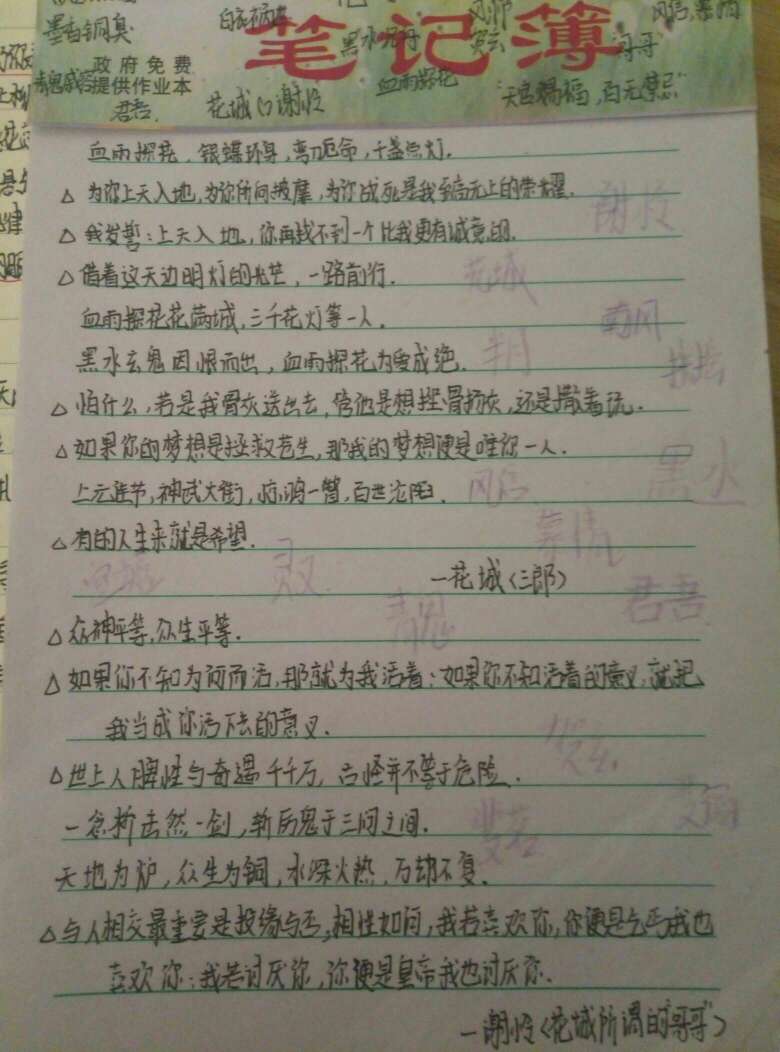 墨香铜臭
黑水
笔记簿
政府免费
提供作业本
血雨探花
君吾
花城 谢怜
天官赐福，百无禁忌
血雨探花，银蝶环身，弯刀厄命，千盏灯。
△为你上天入地，为你所向披靡，为你战死是我至高无上的荣耀。
△我发誓：上天入地，你再找不到一个比我更有诚意的。
△借着这天边明灯的光芒，一路前行.
血雨探花花满城，三千花灯等一人.
黑水玄鬼因恨而出，血雨探花为爱成绝.
△怕什么，若是我骨灰送出去，管他是想挫骨扬灰，还是撒着玩.
△如果你的梦想是拯救苍生，那我的梦想便是唯你一人.
上元佳节，神武大街，惊鸿一瞥，百世沦陷.
△有的人生来就是希望.
—花城〈三郎〉
△众神平等，众生平等.
△如果你不知为何而活，那就为我活着；如果你不知活着的意义，就把
我当成你活下去的意义.
△世上人脾性与奇遇千千万，古怪并不等于危险.
一念桥去然一剑，斩厉鬼于三间之间.
天地为炉，众生为铜，水深火热，万劫不复.
△与人相交最重要是投缘与否，相性如何，我若喜欢你，你便是乞丐我也
喜欢你；我若讨厌你，你便是皇帝我也讨厌你.
—谢怜〈花城所谓的“哥哥”〉
谢怜
花城
南风
扶摇
黑水
风信
慕情
君吾
青鬼